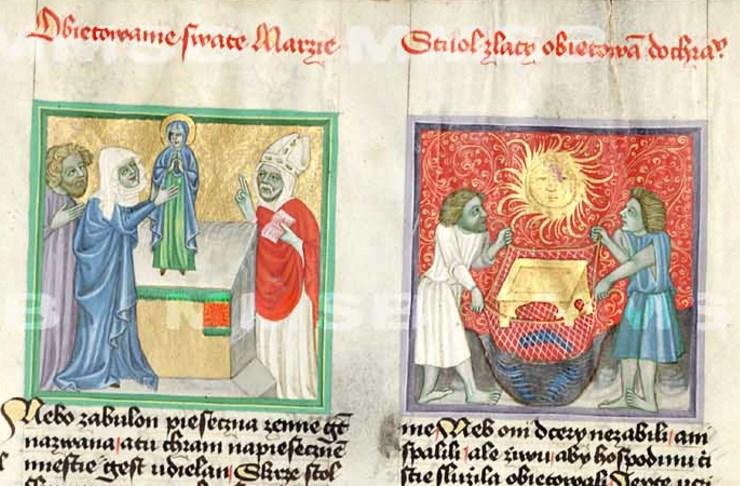 Obietowanie swate Marzie
Stuol zlaty obietowa᷃ do chra᷃
Nebo zabulon pieseczna zemie gt̄
nazwana a tu chram na piesečnē
miestie gest udielan Skrze stol
me Neb oni dcery nezabili ani
spalili ale żiwu aby hospodinu ti
stie sluzila obietowali Jepte